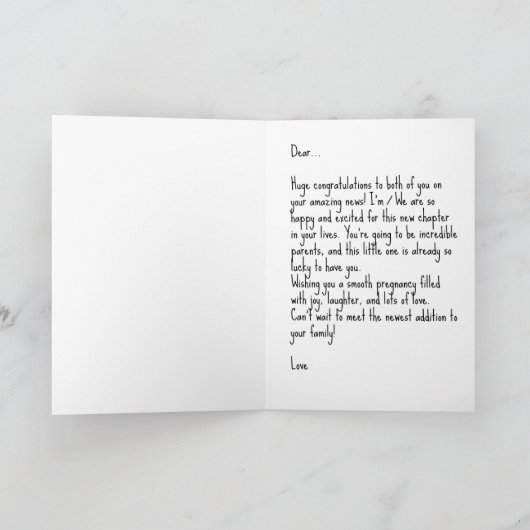 Dear...
Huge congratulations to both of you on
your amazing news! I'm / We are so
happy and excited for this new chapter
in your lives. You're going to be incredible
parents, and this little one is already so
lucky to have you.
Wishing you a smooth pregnancy filled
with joy, laughter, and lots of love.
Can't wait to meet the newest addition to
your family!
Love